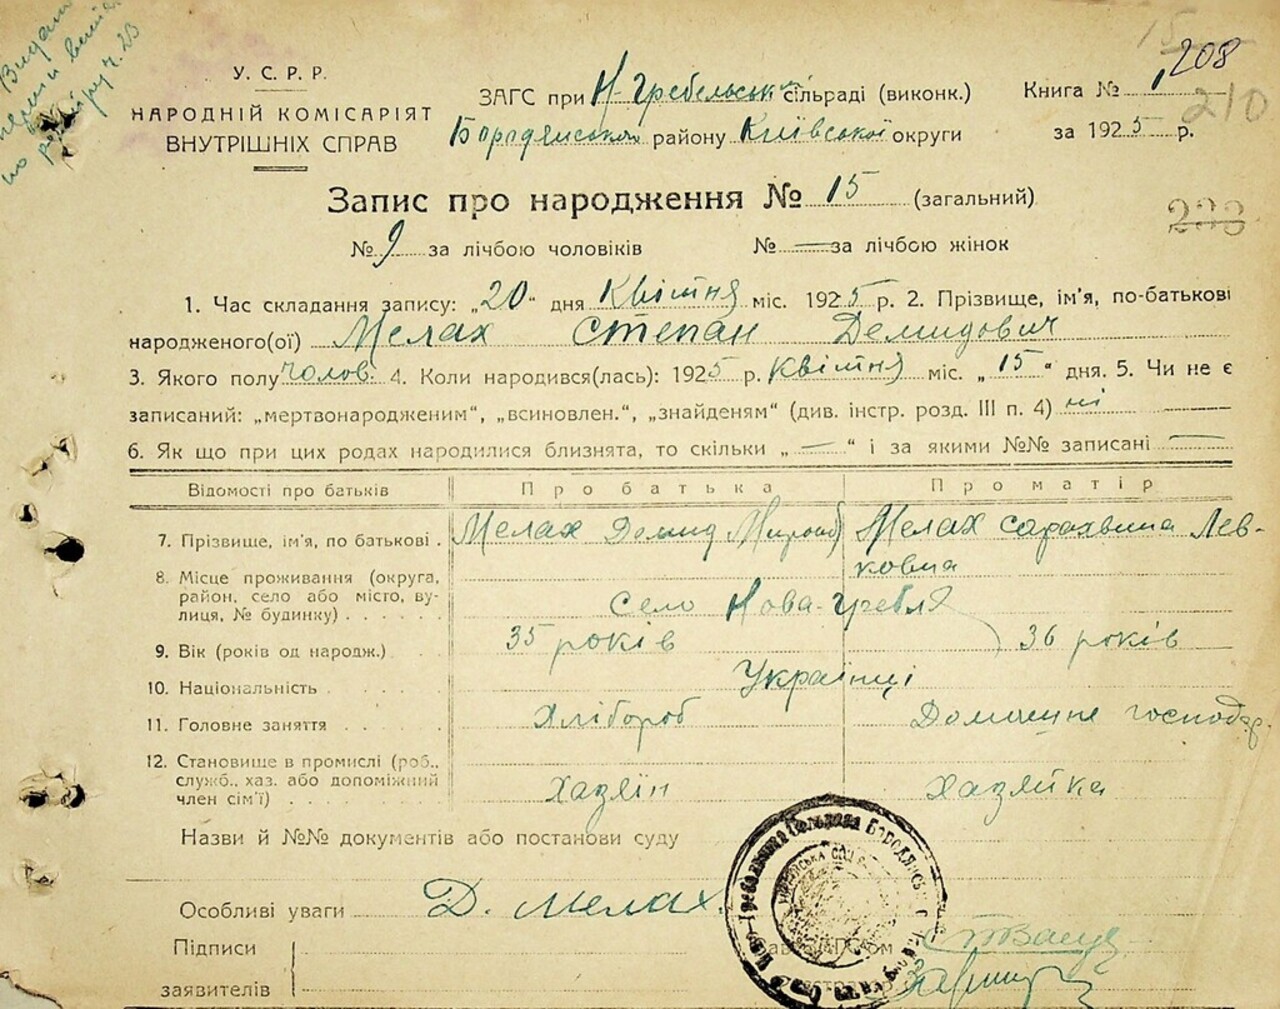 208
210
У. С. Р. Р.
НАРОДНІЙ КОМІСАРІЯТ
ВНУТРІШНІХ СПРАВ
ЗАГС при Н-Гребельській сільраді (виконк.)
Бородянського району Київської округи
Книга № 1
за 1925 р.
Запис про народження № 15 (загальний)
233
№ 9 за лічбою чоловіків № — за лічбою жінок
1. Час складання запису: „20" дня Квітня міс. 1925 р. 2. Прізвище, ім'я, по-батькові
народженого(ої) Мелах Степан Демидович
3. Якого полу чолов. 4. Коли народився(лась): 1925 р. Квітня міс. „15" дня. 5. Чи не є
записаний: „мертвонародженим", „всиновлен.", „знайденям" (див. інстр. розд. III п. 4) ні
6. Як що при цих родах народилися близнята, то скільки „—" і за якими №№ записані —
Відомості про батьків Про батька Про матір
7. Прізвище, ім'я, по батькові . Мелах Демид Миронов Мелах Сарахвима Лев-
ковна
8. Місце проживання (округа,
район, село або місто, ву-
лиця, № будинку) . . . . . . Село Нова-Гребля
9. Вік (років од народж.) . . 35 років 36 років
10. Національність . . . . . Українці
11. Головне заняття . . . . . Хлібороб Домашне господар.
12. Становище в промислі (роб.,
служб., хаз. або допоміжний
член сім'ї) . . . . . . . . Хазяїн Хазяйка
Назви й №№ документів або постанови суду
Особливі уваги Д. Мелах.
Підписи
заявителів